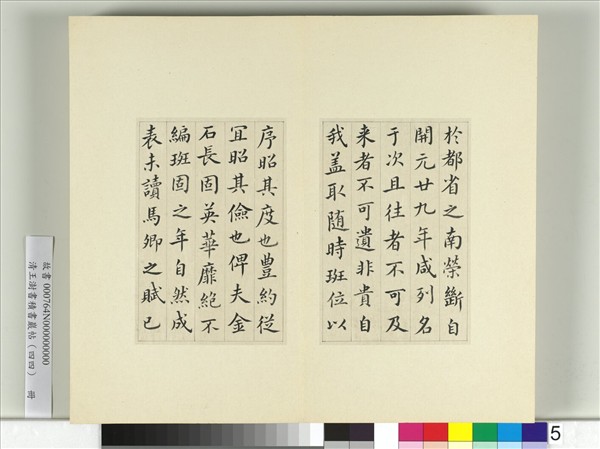 於都省之南榮斷自
開元廿九年咸列名
于次且往者不可及
来者不可遺非貴自
我盖取随時班位以
序昭其度也豊約從
宜昭其儉也俾夫金
石長固英華靡絶不
編班固之年自然成
表未讀馬卿之賦已
故書 000764N000000000
清王澍書積書巖帖（四四） 冊
5